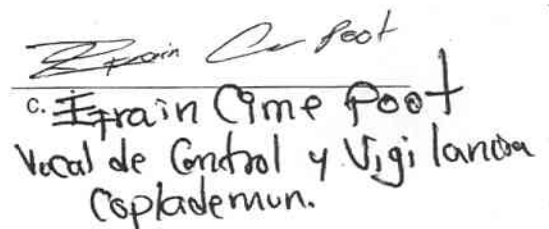 Efrain C Poot
C. Efrain Cime Poot
Vocal de Control y Vigilancia
Coplademun.